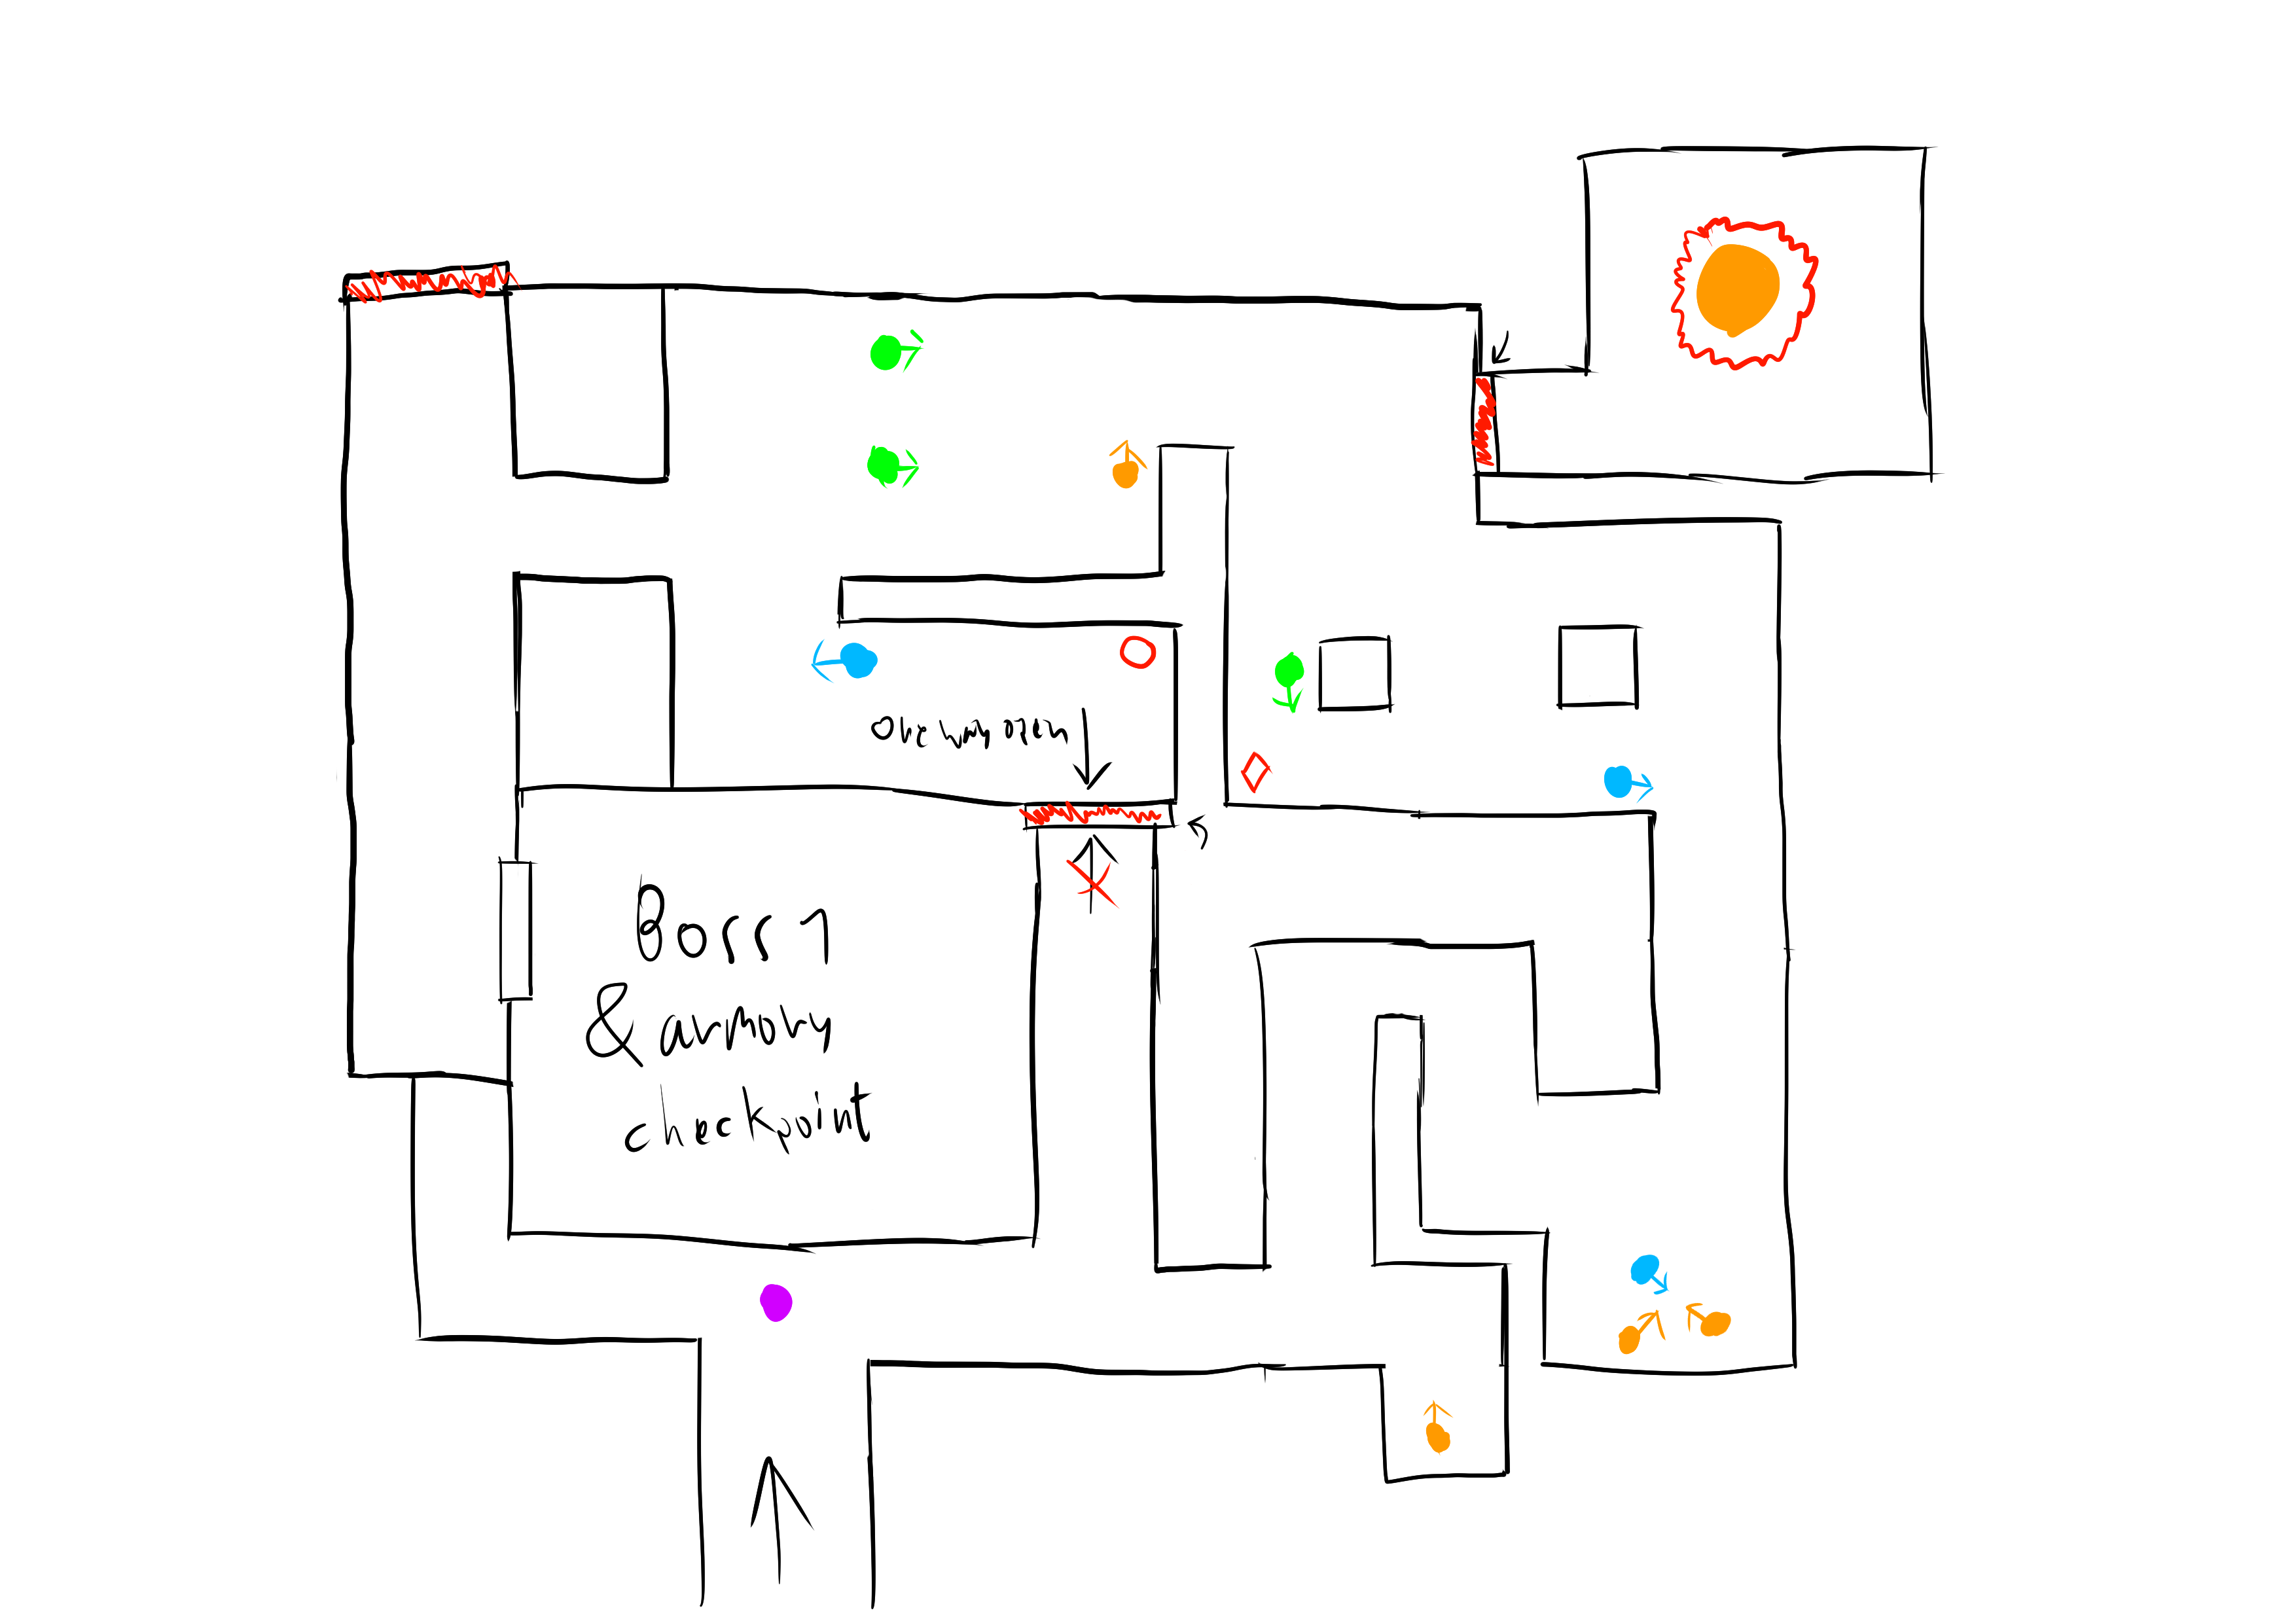 One way open
Boss 1
& armory
checkpoint